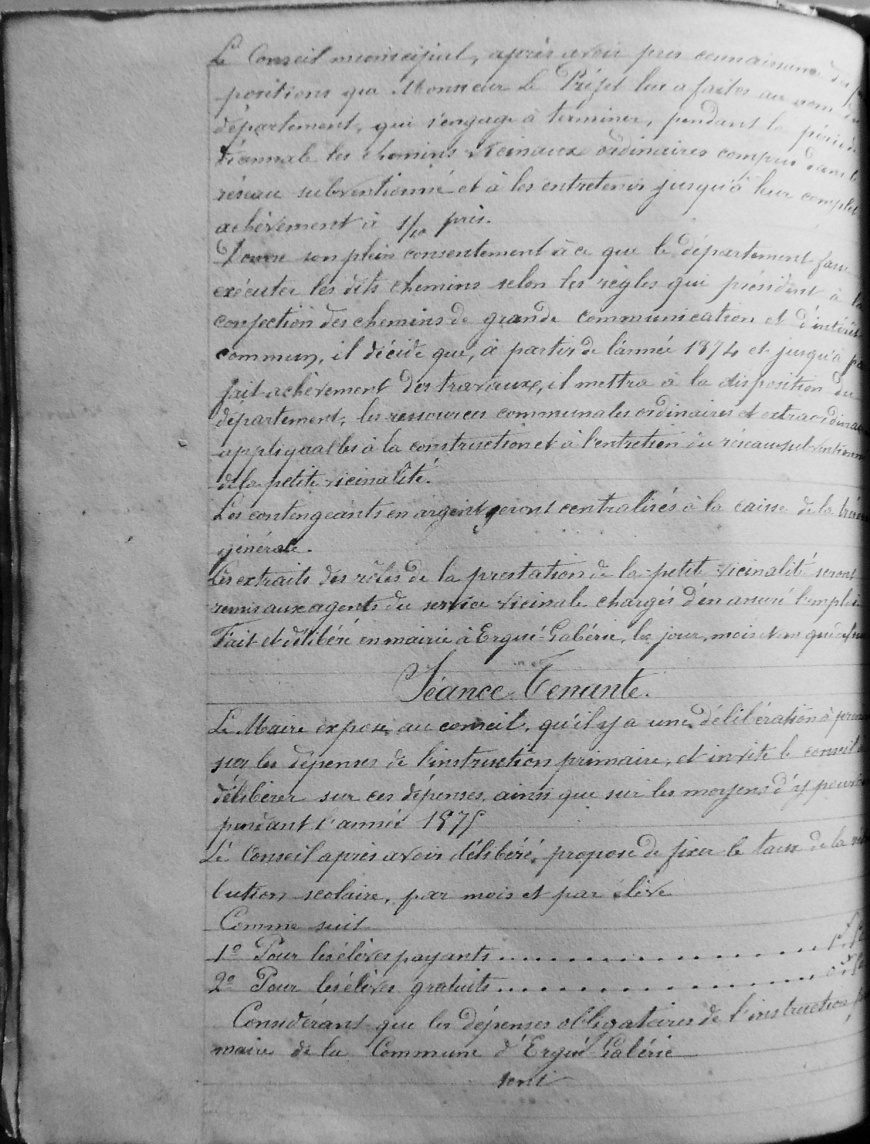 Le Conseil municipial, après avoir pris connaissance des
positions que Monsieur Le Préfet lui a faites au nom du
département, qui s'engage à terminer, pendant la période
les chemins vicinaux ordinaires compris dans le
réseau subventionné et à les entretenir jusqu'à leur complet
achèvement à 1/10 près.
Donne son plein consentement à ce que le département fasse
exécuter les dits chemins selon les règles qui président à la
confection des chemins de grande communication et d'intérêt
commun, il décide que, à partir de l'année 1874 et jusqu'à par
fait achèvement des travaux, il mettra à la disposition du
département, les ressources communales ordinaires et extraordinai
appliquables à la construction et à l'entretien du réseau subventionn
de la petite vicinalité.
Les contengeants en argent seront centralisés à la caisse de la
générale.
Les extraits des rôles de la prestation de la petit vicinalité seront
remis aux agents du service vicinale chargés d'en assuré l'emploi
Fait et délibéré en mairie à Ergué-Gabéric, les jour, mois et an que
Séance Tenante.
Le Maire expose au conseil, qu'il y a une délibération à
sur les dépenses de l'instruction primaire, et invite le conseil à
délibérer sur ces dépenses, ainsi que sur les moyens d'y pourvoi
pendant l'année 1875
Le Conseil après avoir délibéré, propose de fixer le taux de la
bution scolaire, par mois et par élève
Comme suit
1º Pour les élèves payants..................
2º Pour les élèves gratuits..................
Considérant que les dépenses obligatoires de l'instruction pri
maire de la Commune d'Ergué-Gabéric
sont